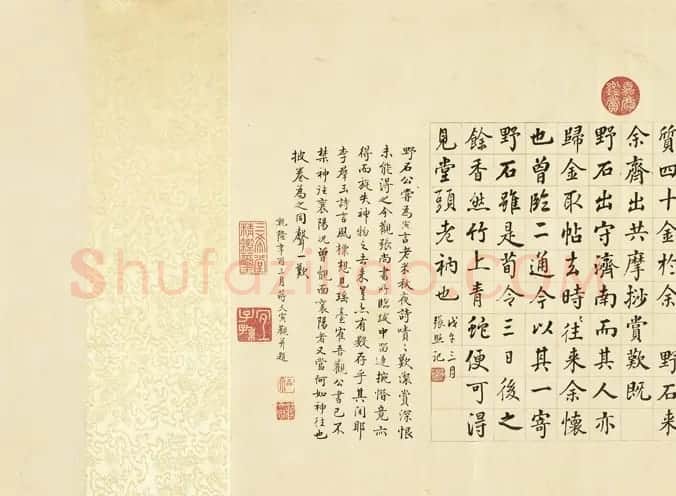 質四十金於余野石来
余齊出共摩抄賞歎既
野石出守濟南而其人亦
歸金取帖去時往来余懷
也曾臨二通今以其一寄
野石雖是荀令三日後之
餘香然竹上青蛇便可得
見堂頭老衲也
戊午三月
張照記
野石公嘗為寅言老米秋夜詩嘖嘖歎深賞深恨
未能得之今觀張尚書所臨
得而旋失神物之去来豈亦有數存乎其间耶
李羣玉詩言風標想見瑤臺寉吾觀公書已不
禁神往襄陽況曾覩面襄陽者又當何如神往也
披卷為之同聲一歎
乾隆辛酉
月蔣
寅觀并題
Shufazidao.com